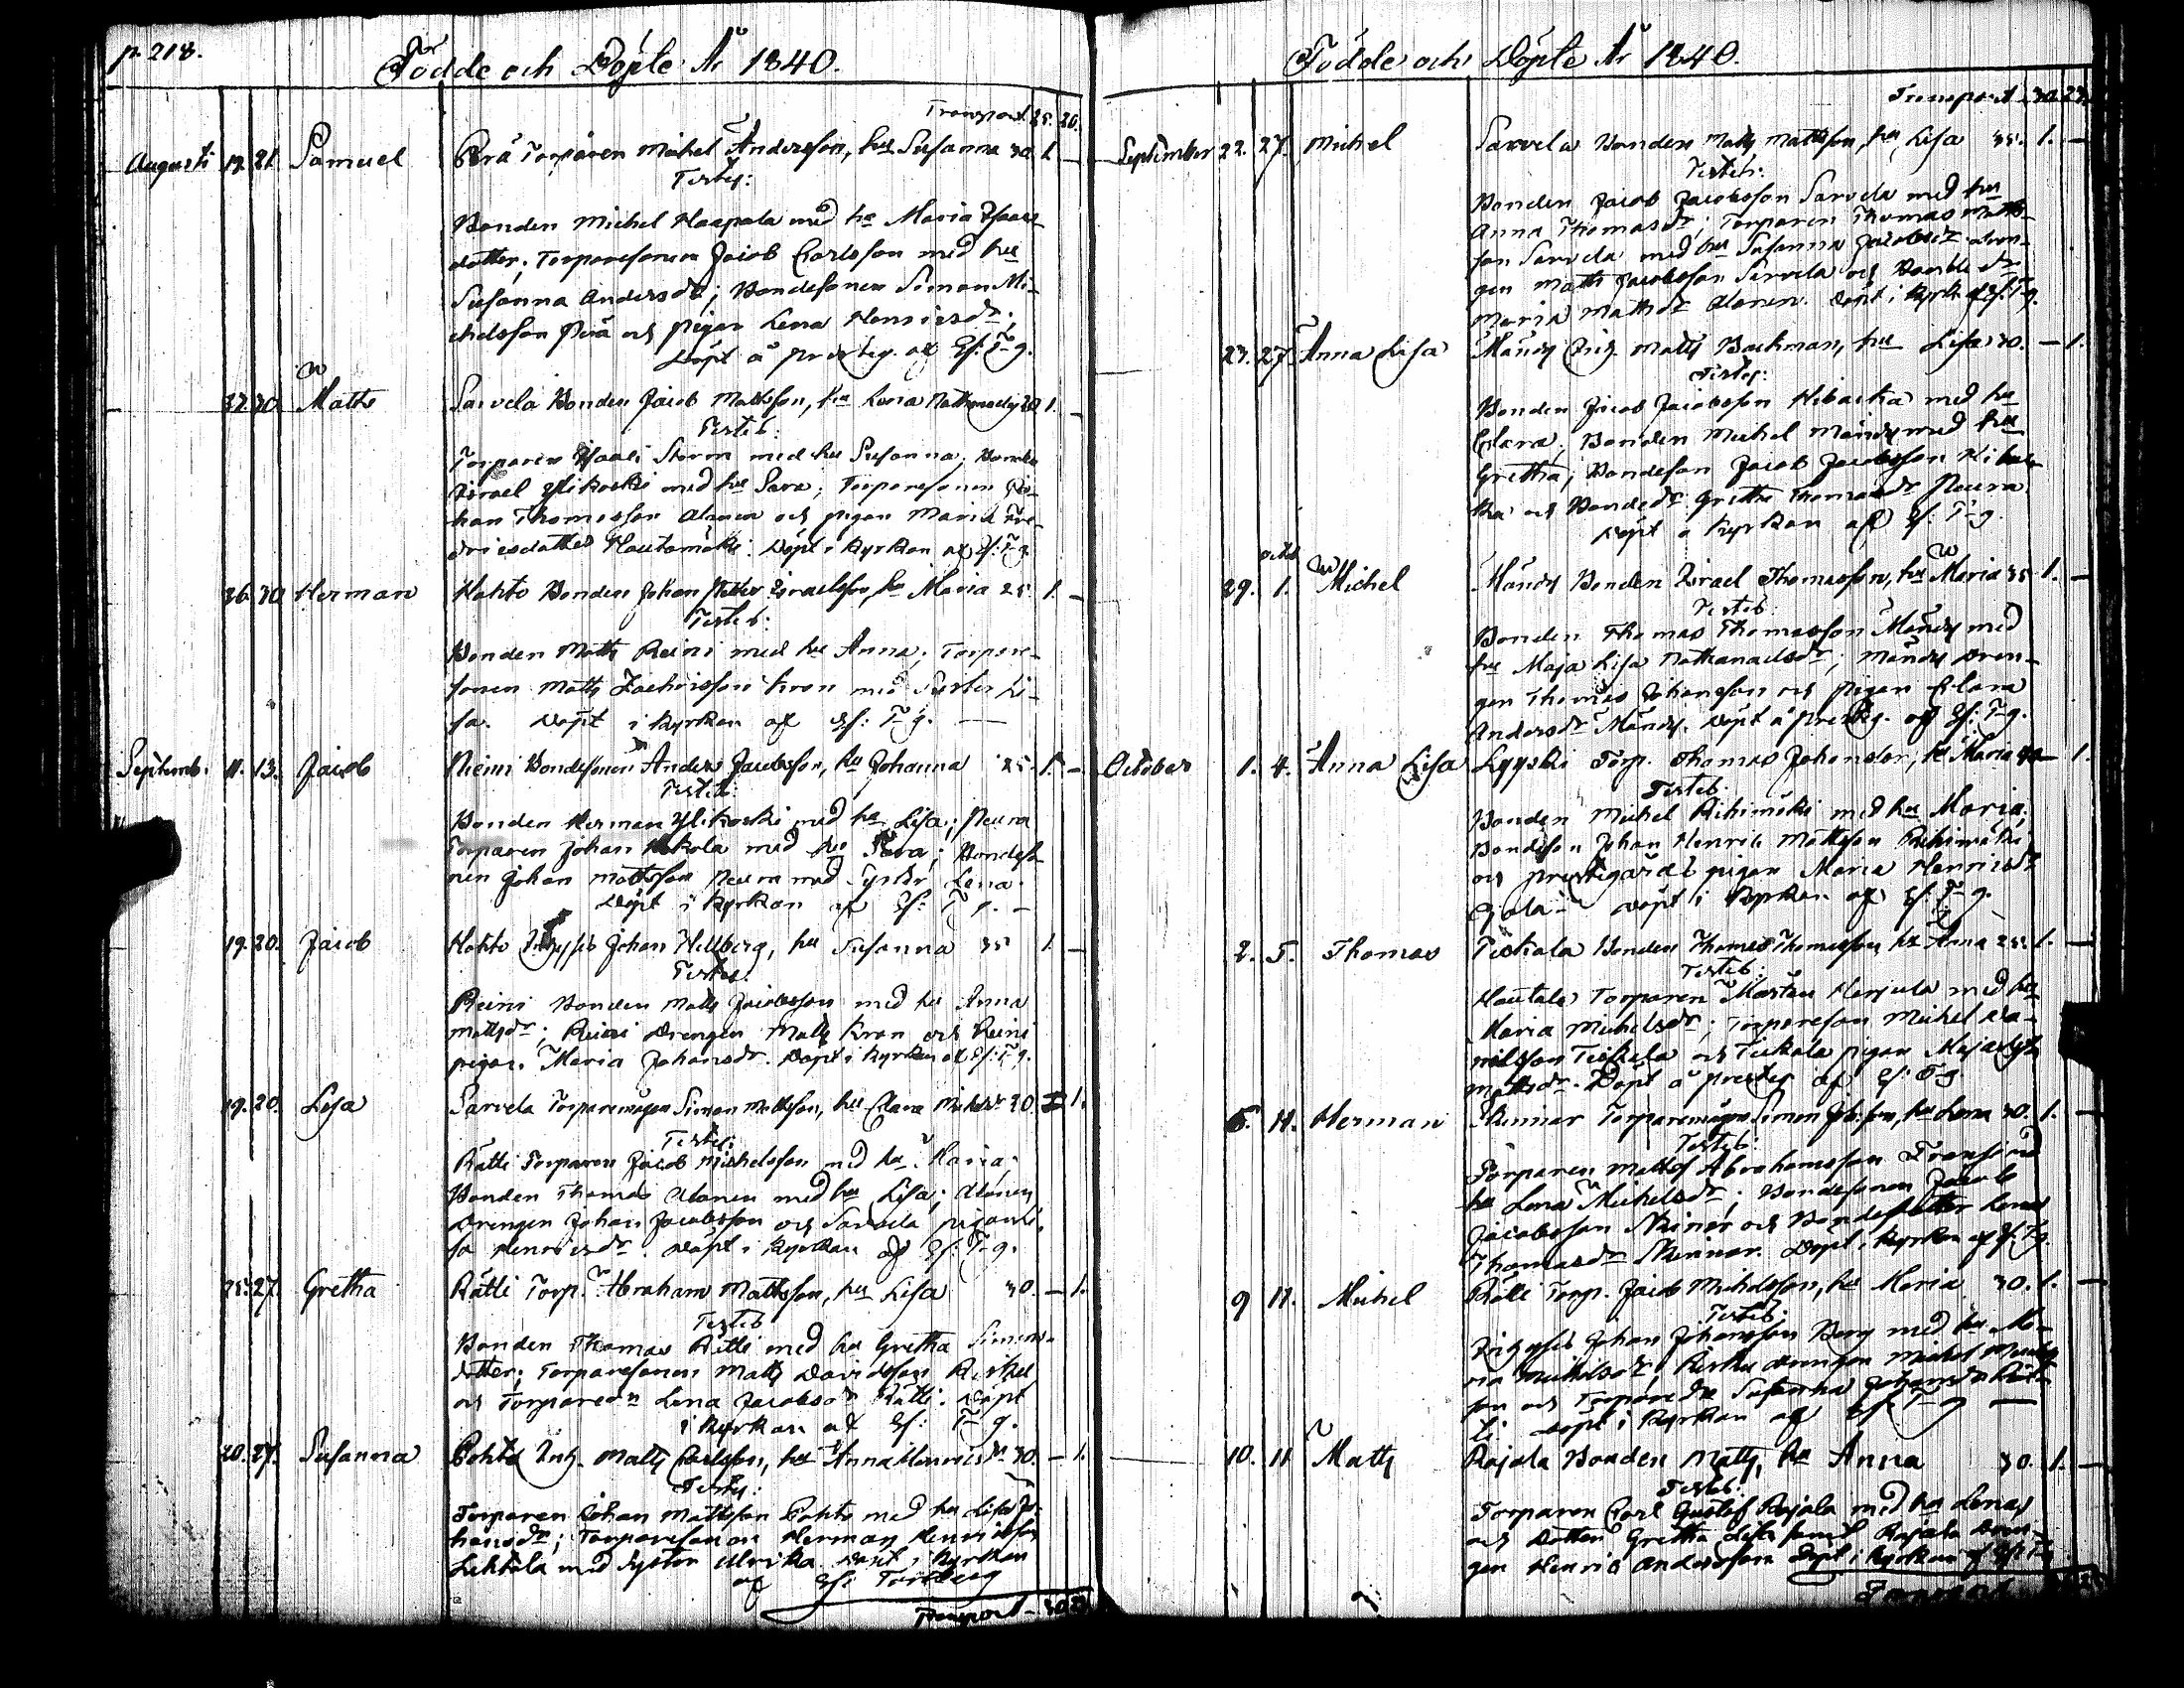 p. 218.
Födde och Döpte År 1840.
Transport 25. 20.
Augusti 19. 21. Samuel Perä Torparen Michel Andersson, hu Susanna 30. 1. —
Testes:
Bonden Michel Haapala med hu Maria Isaacs
dotter; Torparesonen Jacob Carlsson med hu
Susanna Andersdr; Bondesonen Simon Mi-
chelsson Perä och pigan Lena Henricsdr;
Döpt å prestg. af Ef: T-g.
27. 30. Matts Sarvela Bonden Jacob Mattsson, hu Lena 1. —
Testes:
Torparen Isaac Storm med hu Susanna; Bonden
Israel Ylikoski med hu Sara; Torparesonen Jo-
han Thomasson Alanen och pigan Maria Fre-
dricsdotter Hautamäki. Döpt i kyrkan af Ef: T-g.
26. 30. Herman Kohto Bonden Johan Petter Israelsson, hu Maria 25. 1. —
Testes:
Bonden Matts Reini med hu Anna; Torpare-
sonen Matts Zachrisson Kron med Syster Li-
sa. Döpt i kyrkan af Ef: T-g. —
Septemb. 11. 13. Jacob Niemi Bondesonen Anders Jacobsson, hu Johanna 25. 1. —
Testes:
Bonden Herman Ylikoski med hu Lisa; Neura
Torparen Johan Kokola med hu Sara; Bondeso-
nen Johan Mattsson Neura med Syster Lena.
Döpt i kyrkan af Ef: T-g. —
19. 20. Jacob Kohto Johan Hellberg, hu Susanna 35 1. —
Testes:
Reini Bonden Matts Jacobsson med hu Anna
Mattsdr; Reini Drengen Matts Kron och Reini
pigan Maria Johansdr. Döpt i kyrkan af Ef: T-g.
19. 20. Lisa Sarvela Torparemågen Simon Mattsson, hu Clara Michelsdr 30. 1.
Testes:
Rätti Torparen Jacob Michelsson med hu Maria;
Bonden Thomas Alanen med hu Lisa; Alanen
Drengen Johan Jacobsson och Sarvela pigan Li-
sa Henricsdr. Döpt i kyrkan af Ef: T-g.
25. 27. Gretha Rätti Torp. Abraham Mattsson, hu Lisa 30. — 1.
Testes
Bonden Thomas Rätti med hu Gretha Simons-
dotter; Torparesonen Matts Davidsson
och Torparedr Lena Jacobsdr Rätti. Döpt
i kyrkan af Ef: T-g.
20. 27. Susanna Pohto Inh. Matts Carlsson, hu Anna Henricsdr 30. — 1.
Testes:
Torparen Johan Mattsson Pohto med hu Lisa Jo-
hansdr; Torparesonen Herman Henricsson
Lehtola med Syster Ulrika. Döpt i kyrkan
af Ef: Forsberg
Transport
Födde och Döpte År 1840.
Transport 30. 23.
September 22. 27. Michel Sarvela Bonden Matts Mattsson, hu Lisa 35. 1. —
Testes:
Bonden Jacob Jacobsson Sarvela med hu
Anna Thomasdr; Torparen Thomas Matts-
son Sarvela med hu Susanna Jacobsdr Dren-
gen Matts Jacobsson Sarvela och Bonde dr
Maria Mattsdr Alanen. Döpt i kyrk. af Ef: T-g.
23. 27. Anna Lisa Mändy Inh. Matts Backman, hu Lisa 30. — 1.
Testes:
Bonden Jacob Jacobsson Kibaska med hu
Clara; Bonden Michel Mändy med hu
Gretha; Bondeson Jacob Jacobsson Kibas-
ka och Bondedr Gretha Thomasdr Neura.
Döpt i kyrkan af Ef: T-g.
Octob
29. 1. Michel Mändy Bonden Israel Thomasson, hu Maria 35 1. —
Testes:
Bonden Thomas Thomasson Mändy med
hu Maja Lisa Nathanaelsdr; Mändy Dren-
gen Thomas Johansson och pigan Clara
Andersdr Mändy. Döpt å prestg. af Ef: T-g.
October 1. 4. Anna Lisa Lyyski Torp. Thomas Johansson, hu Maria — 1.
Testes:
Bonden Michel Riihimäki med hu Maria;
Bondeson Johan Henric Mattsson Riihimäki
och prestegårds pigan Maria Henricsdr
Ojala. Döpt i kyrkan af Ef: T-g.
2. 5. Thomas Tiskala Bonden Thomas Thomasson, hu Anna 25. 1. —
Testes:
Hautala Torparen Mårten Harjula med hu
Maria Michelsdr; Torpareson Michel Da-
nielsson Tiskala och Tiskala pigan Maja Lisa
Mattsdr. Döpt å prestg af Ef: T-g.
5. 11. Herman Skinnar Torparemågen Simon Johansson, hu Lena 30. 1. —
Testes:
Torparen Matts Abrahamsson med
hu Lena Michelsdr; Bondesonen Jacob
Jacobsson Skinar och Bondedotter Lena
Thomasdr Skinnar. Döpt i kyrkan af Ef: T-g.
9 11. Michel Rätti Torp. Jacob Michelsson, hu Maria 30. 1. —
Testes
Johan Johansson Berg med hu Ma-
ria Michelsdr; drengen Michel
son och Torpare dr Susanna Johansdr Rät-
ti Döpt i kyrkan af Ef: T-g —
10. 11 Matts Rajala Bonden Matts, hu Anna 30. 1. —
Testes:
Torparen Carl Gustaf Rajala med hu Lena,
och Dotter Gretha Lisa samt Rajala Dren-
gen Henric Andersson Döpt i kyrkan af Ef: T-g
Transport